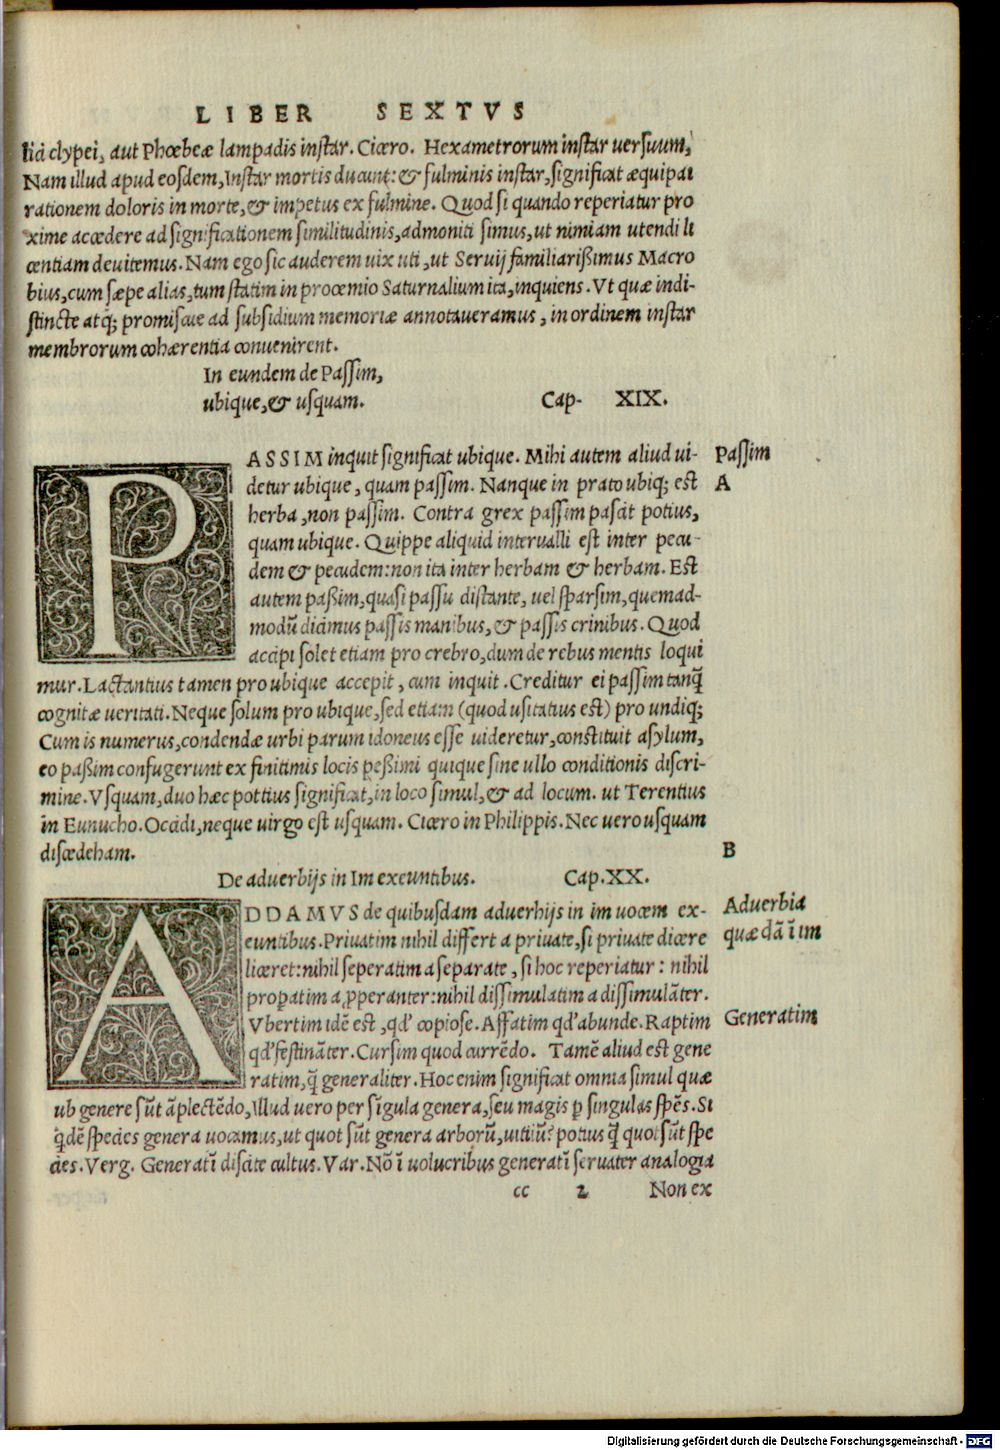 LIBER SEXTVS
lia clypei, aut Phœbeæ lampadis instar. Cicero. Hexametrorum instar versuum,
Nam illud apud eosdem, Instar mortis ducunt: & fulminis instar, significat æquipa
rationem doloris in morte, & impetus ex fulmine. Quod si quando reperiatur pro
xime accedere ad significationem similitudinis, admoniti simus, ut nimiam utendi li
centiam devitemus. Nam ego sic auderem uix uti, ut Seruij familiarißimus Macro
bius, cum sæpe alias, tum statim in procemio Saturnalium ita, inquiens. Vt quæ indi-
stincte atq; promiscue ad subsidium memoriæ annotaveramus, in ordinem instar
membrorum cohærentia convenirent.
In eundem de Passim,
ubique, & usquam. Cap- XIX.
PASSIM inquit significat ubique. Mihi autem aliud ui- Passim
detur ubique, quam passim. Nanque in prato ubiq; est A
herba, non passim. Contra grex passim pascit potius,
quam ubique. Quippe aliquid intervalli est inter pecu-
dem & pecudem: non ita inter herbam & herbam. Est
autem paßim, quasi passu distante, uel sparsim, quemad-
modū dicimus passis manibus, & passis crinibus. Quod
accipi solet etiam pro crebro, dum de rebus mentis loqui
mur. Lactantius tamen pro ubique accepit, cum inquit. Creditur ei passim tanq̃
cognitæ veritati. Neque solum pro ubique, sed etiam (quod usitatius est) pro undiq;
Cum is numerus, condendæ urbi parum idoneus esse uideretur, constituit asylum,
eo paßim confugerunt ex finitimis locis peßimi quique sine ullo conditionis discri-
mine. Vsquam, duo hæc pottius significat, in loco simul, & ad locum. ut Terentius
in Eunucho. Occidi, neque uirgo est usquam. Cicero in Philippis. Nec uero usquam
discedebam. B
De aduerbijs in Im exeuntibus. Cap. XX.
ADDAMVS de quibusdam aduerbijs in im uocem ex- Aduerbia
euntibus. Priuatim nihil differt a priuate, si priuate dicere quæ dā ī im
liceret: nihil seperatim a separate, si hoc reperiatur: nihil
properatim a ꝓperanter: nihil dissimulatim a dissimulāter.
Vbertim idē est, qd' copiose. Affatim qd' abunde. Raptim Generatim
qd' festināter. Cursim quod currēdo. Tamē aliud est gene
ratim, q̃ generaliter. Hoc enim significat omnia simul quæ
ub genere sūt āplectēdo, Illud uero per sīgula genera, seu magis ꝑ singulas spēs. Si
q̇dē species genera uocamus, ut quot sūt genera arborū, uitiū? potius q̃ quot sūt spe
cies. Verg. Generatī discite cultus. Var. Nō ī uolucribus generatī seruater analogia
cc 2 Non ex
Digitalisierung gefördert durch die Deutsche Forschungsgemeinschaft - DFG